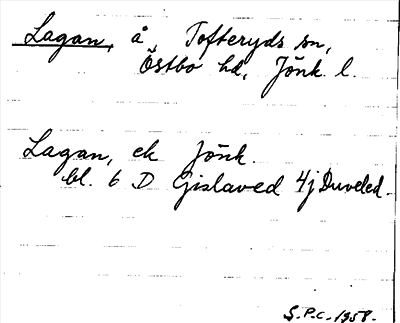 Lagan, å Tofteryds sn,
Östbo hd, Jönk. l.
Lagan, ek Jönk.
bl. 6 D Gislaved 4j Duveled.
S.P.C. 1958.